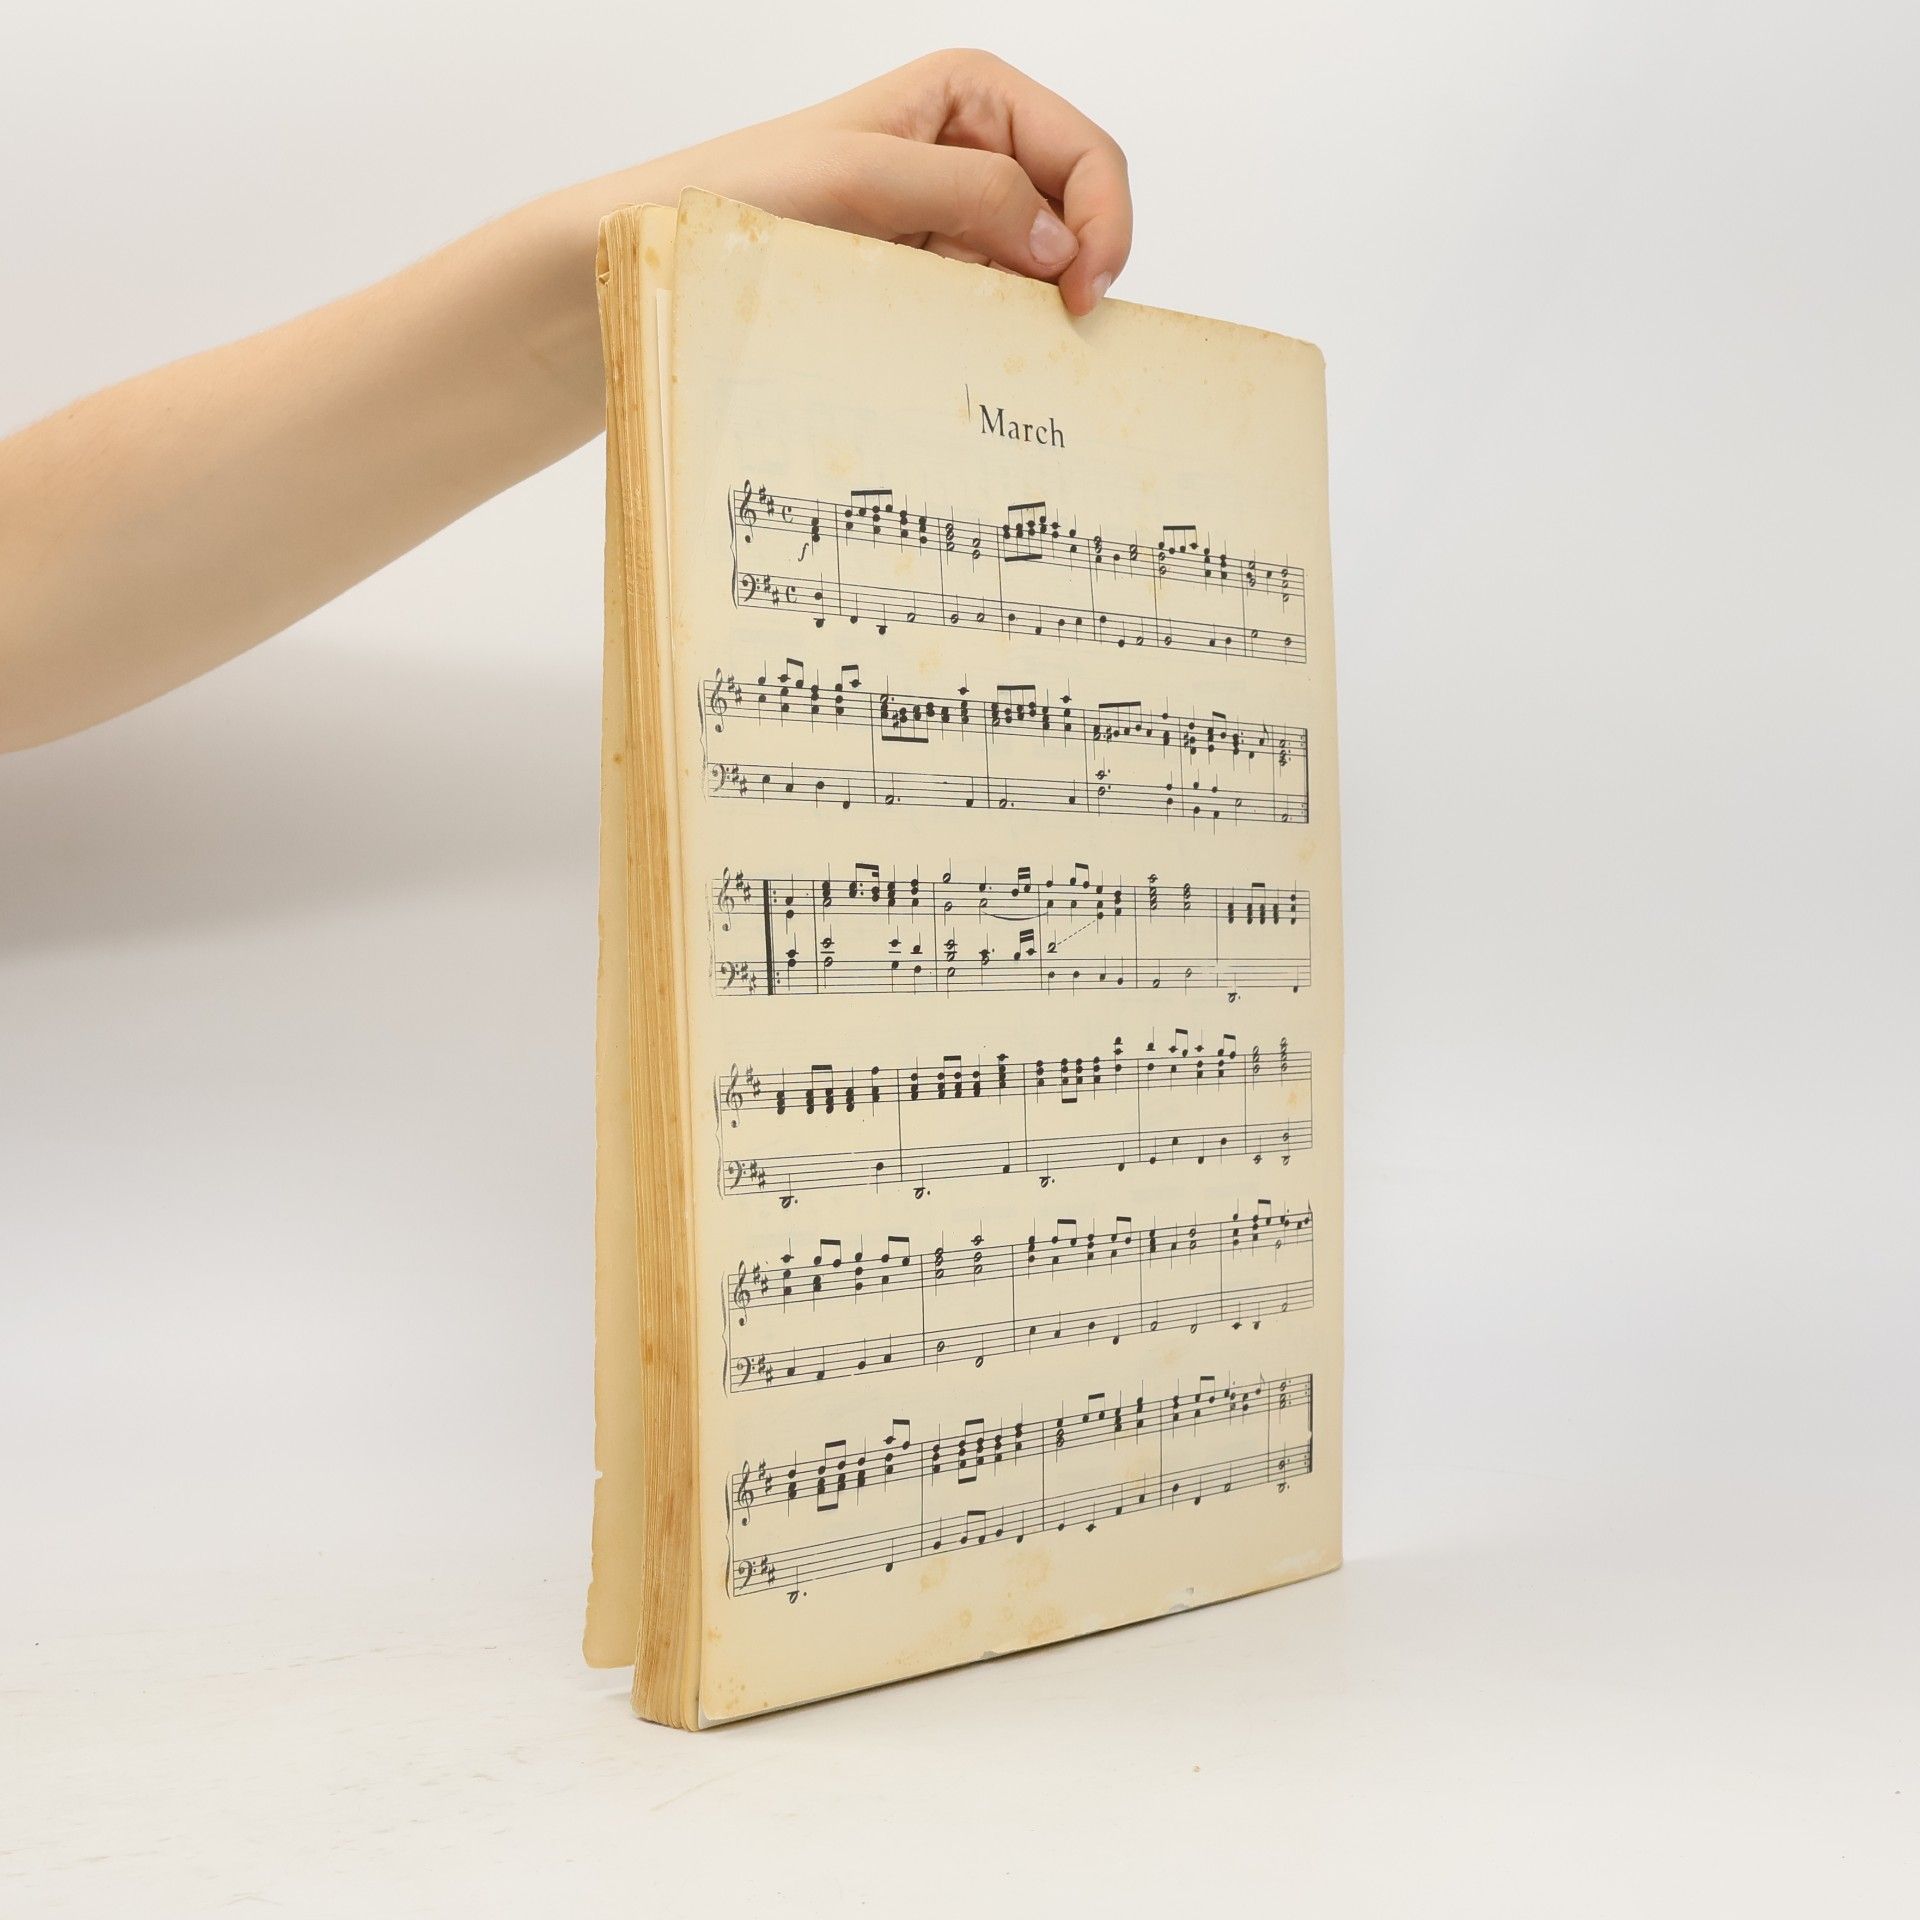 March
f